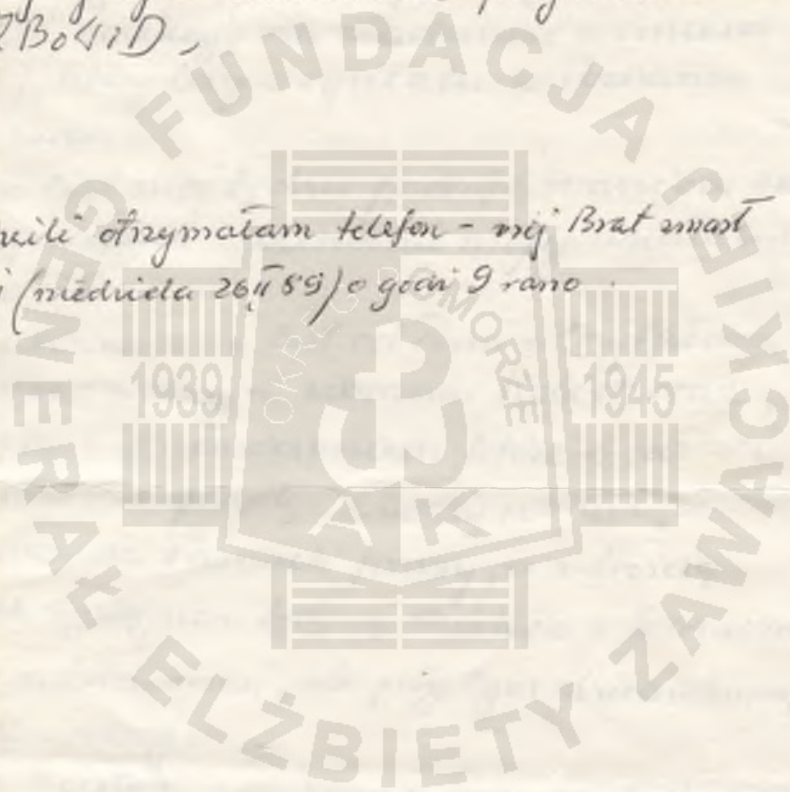 ZBoWiD,
otrzymałam telefon - mój Brat zmarł
(niedziela 26 II 89) o godz 9 rano.
FUNDACJA
GENERAŁ ELŻBIETY ZAWACKIEJ
OKRĘG POMORZE
1939
1945
AK